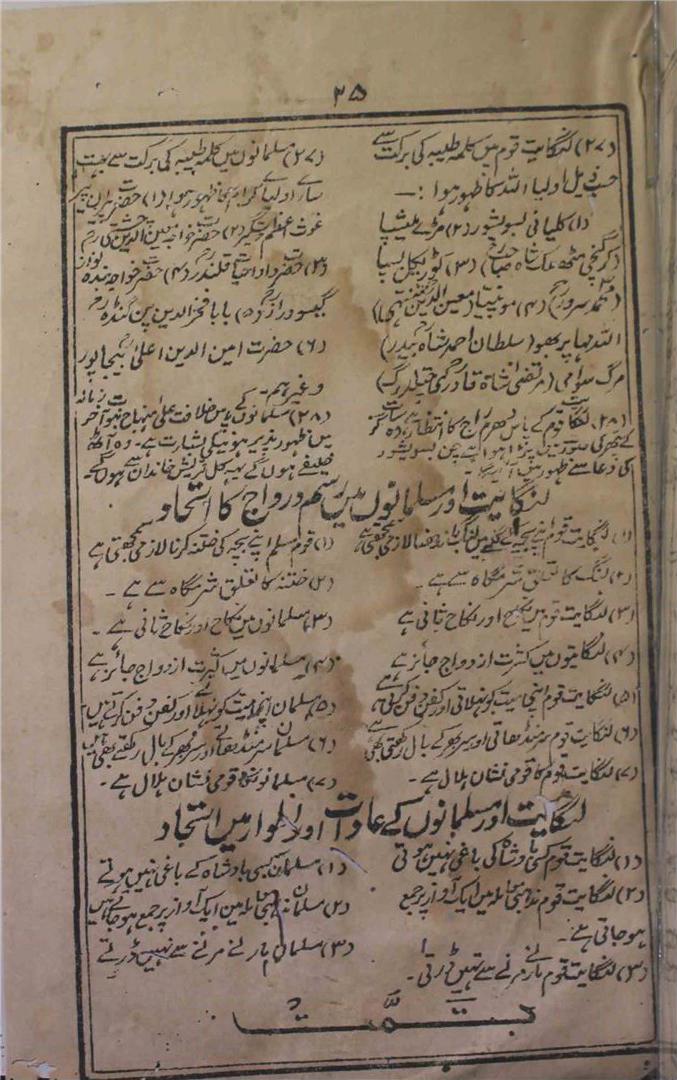 ۲۵
(۲۷) لنگایت قوم میں کلمہ طیبہ کی برکت سے
حسب ذیل اولیا اللہ کا ظہور ہوا :—
(۱) کلیانی بسویشور (۲) مرڑے
(۳) کوڑیکل بسپا
(محمد سرورؒ) (۴) مونپیا (معین الدین
اللہ نہا پربھو (سلطان احمد شاہ بیدر)
مرگ سوامی (مرتضیٰ شاہ قادری چیتلدرگ)
(۲۸) لنگایت قوم کے پاس دھرم راج کا انتظار ہے
کی دعا سے ظہور میں
(۲۷) مسلمانوں میں کلمہ طیبہ کی برکت سے بہت
سارے اولیائے کرام کا ظہور ہوا (۱) حضرت پیران پیر
غوث اعظم دستگیر (۲) حضرت خواجہ معین الدین چشتیؒ
(۳) حضرت دادا حیات قلندرؒ (۴) حضرت خواجہ بندہ نواز
گیسو درازؒ (۵) بابا فخر الدین پن گنڈہؒ
(۶) حضرت امین الدین اعلیٰ بیجاپور
وغیرہم۔
(۲۸) مسلمانوں کے پاس خلافت علی منہاج نبوت آخر زمانہ
میں ظہور پذیر ہونیکی بشارت ہے۔ وہ آٹھ
خلیفے ہوں گے یہہ کل قریش خاندان سے ہوں گے
لنگایت اور مسلمانوں میں رسم و رواج کا اتحاد
(۱) لنگایت قوم اپنے بچہ کے گلے میں لنگ باندھنا لازمی سمجھتی ہے
(۲) لنگ کا تعلق شرمگاہ سے ہے۔
(۳) لنگایت قوم میں نکاح اور نکاح ثانی ہے
(۴) لنگایتوں میں کثرت ازدواج جائز ہے
(۵) لنگایت قوم اپنی میت کو نہلاتی اور کفن و دفن کرتی ہے
(۶) لنگایت قوم سر منڈھاتی اور سر بھر کے بال رکھتی بھی ہے
(۷) لنگایت قوم کا قومی نشان ہلال ہے۔
(۱) قوم مسلم اپنے بچہ کی ختنہ کرنا لازمی سمجھتی ہے
(۲) ختنہ کا تعلق شرمگاہ سے ہے۔
(۳) مسلمانوں میں نکاح اور نکاح ثانی ہے۔
(۴) مسلمانوں میں کثرت ازدواج جائز ہے
(۵) مسلمان اپنی میت کو نہلاتے اور کفن و دفن کرتے ہیں
(۶) مسلمان سر منڈھاتے اور سر بھر کے بال رکھتے بھی ہیں
(۷) مسلمانوں کا قومی نشان ہلال ہے۔
لنگایت اور مسلمانوں کے عادات اور اطوار میں اتحاد
(۱) لنگایت قوم کسی بادشاہ کی باغی نہیں ہوتی
(۲) لنگایت قوم مذہبی معاملہ میں ایک آواز پر جمع
ہو جاتی ہے۔
(۳) لنگایت قوم مارنے مرنے سے نہیں ڈرتی۔
(۱) مسلمان کسی بادشاہ کے باغی نہیں ہوتے
(۲) مسلمان مذہبی معاملہ میں ایک آواز پر جمع ہو جاتے ہیں
(۳) مسلمان مارنے مرنے سے نہیں ڈرتے
تمّت